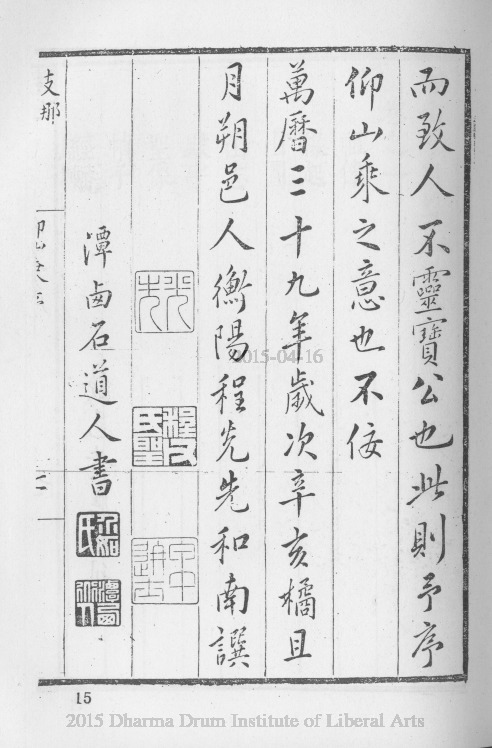 而致人不靈寶公也此則予序
仰山乘之意也不佞
萬曆三十九年歲次辛亥橘且
月朔邑人衡陽程先先和南譔
潭鹵石道人書
支那
15
2015-04-16
2015 Dharma Drum Institute of Liberal Arts